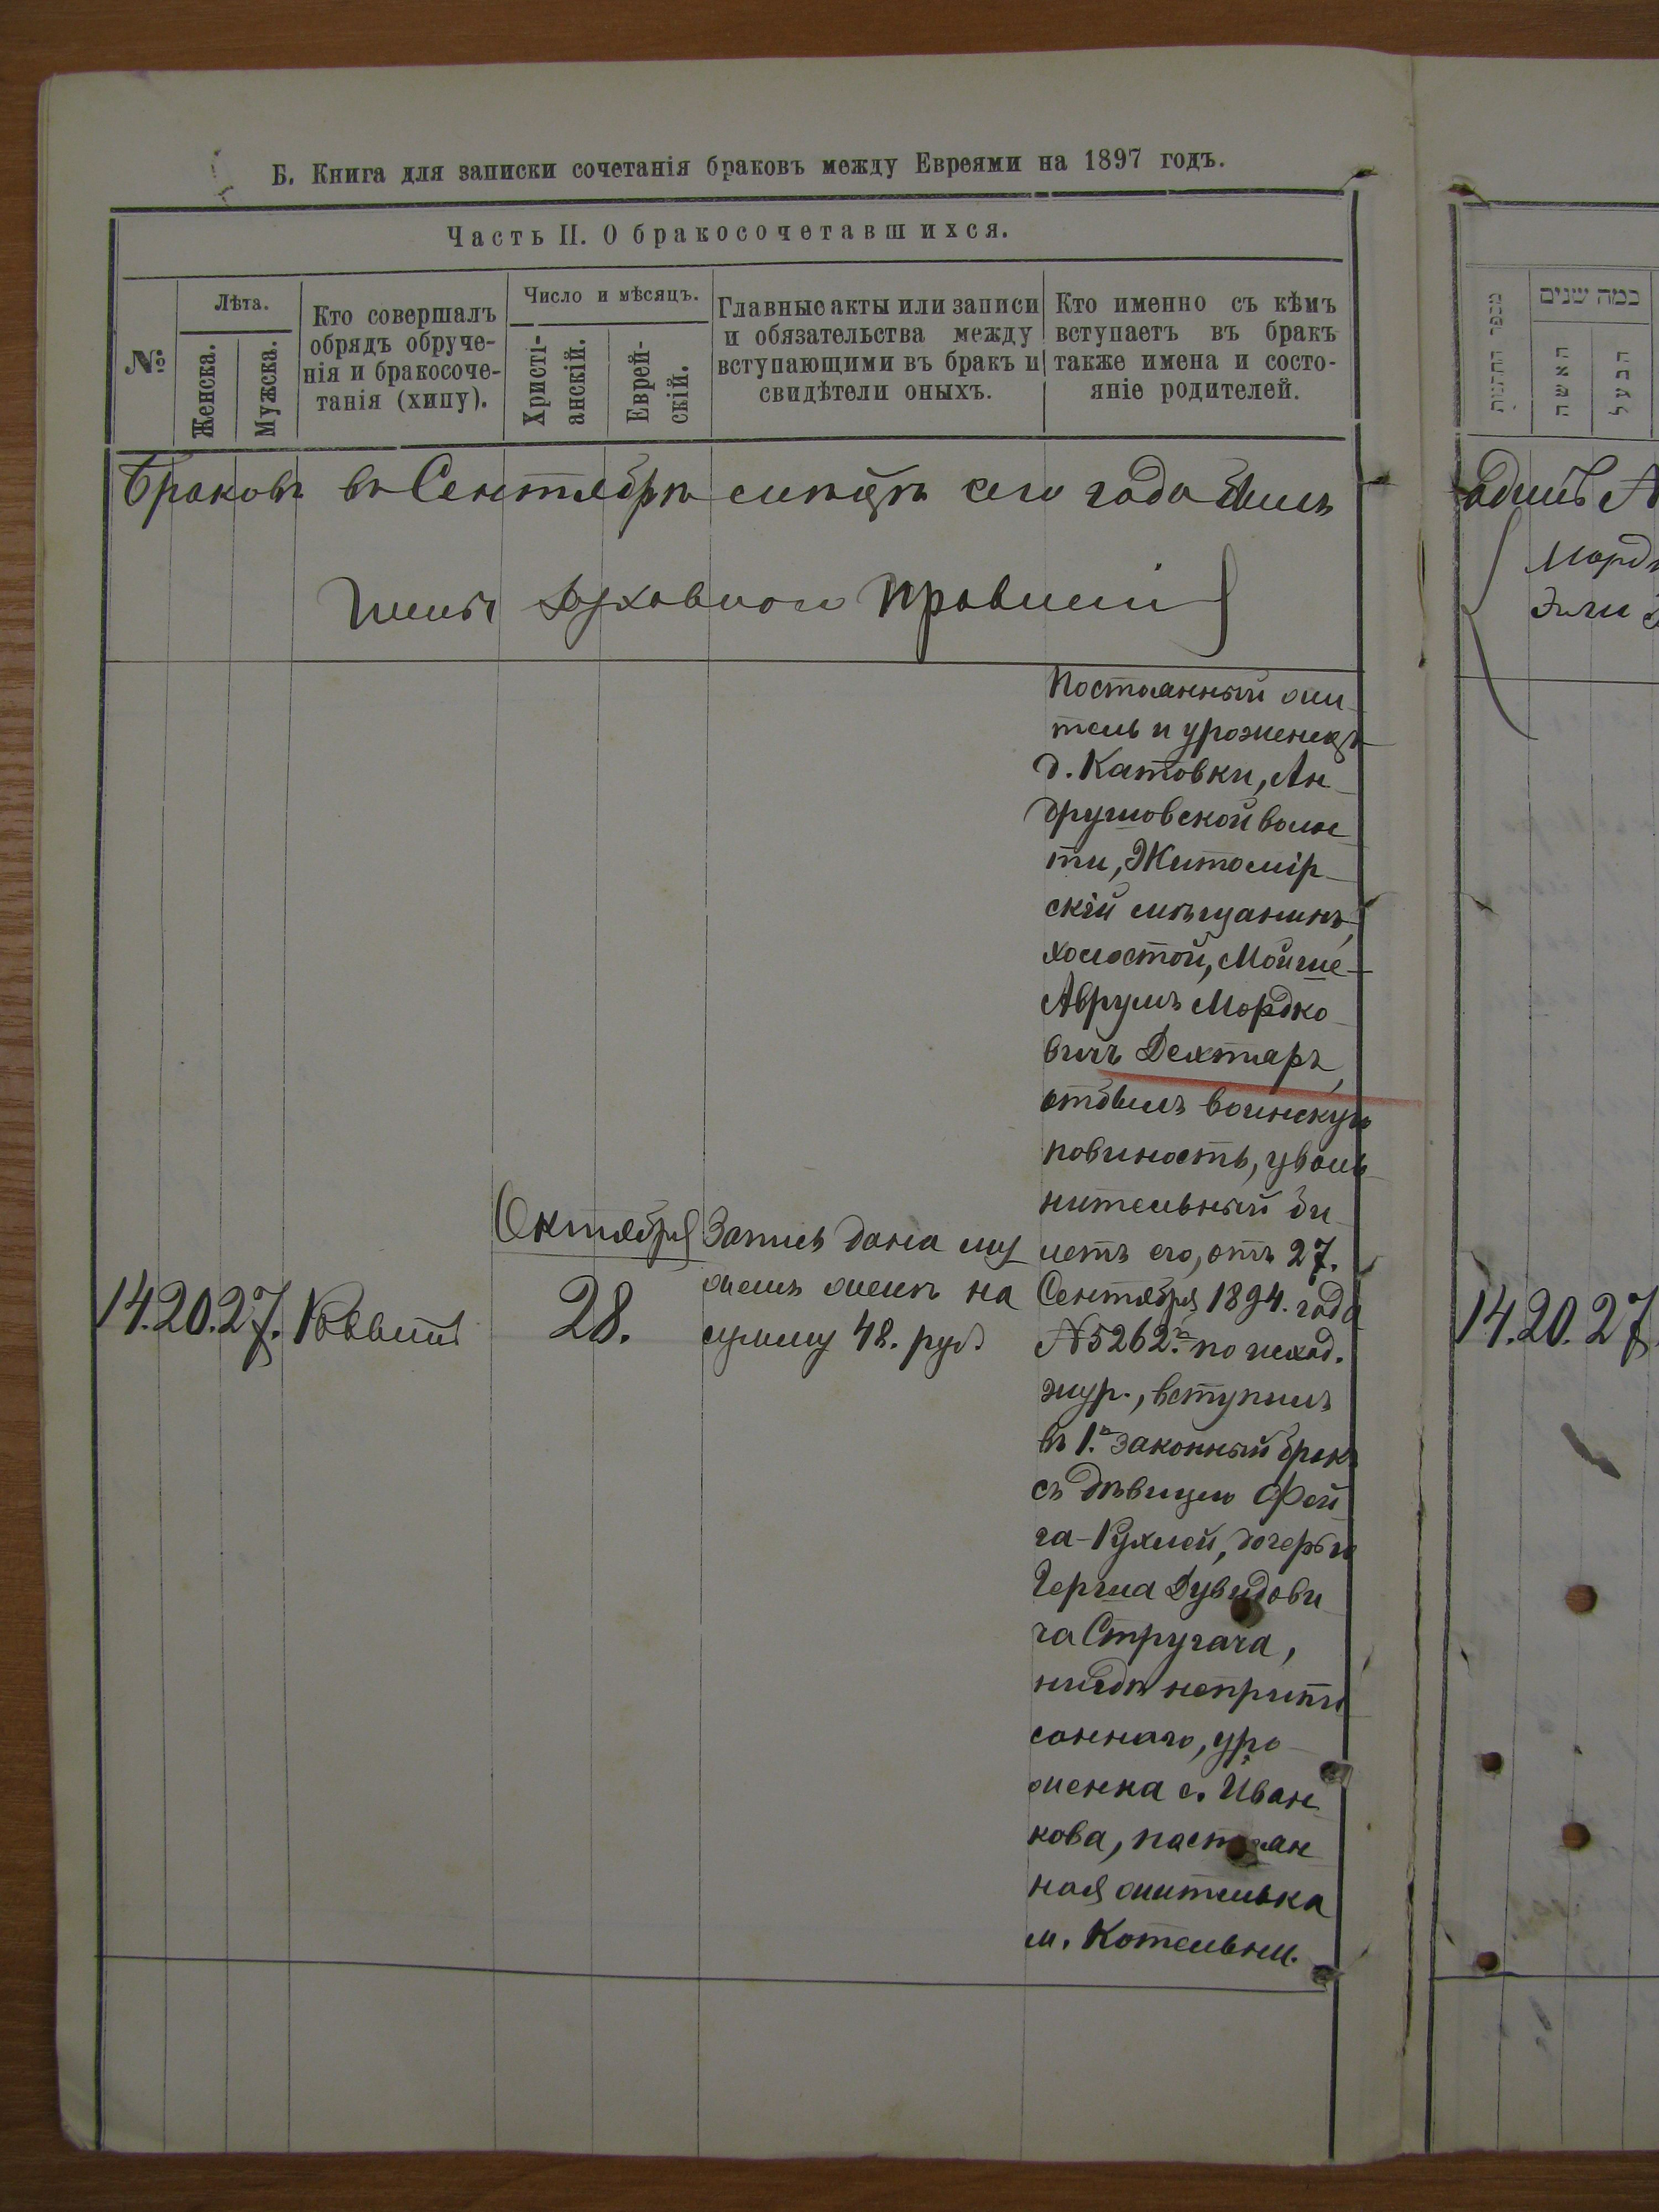 Б. Книга для записки сочетанія браковъ между Евреями на 1897 годъ.
Часть II. О бракосочетавшихся.
№
Лѣта.
Женска.
Мужска.
Кто совершалъ
обрядъ обруче-
нія и бракосоче-
танія (хипу).
Число и мѣсяцъ.
Христі-
анскій.
Еврей-
скій.
Главные акты или записи
и обязательства между
вступающими въ бракъ и
свидѣтели оныхъ.
Кто именно съ кѣмъ
вступаетъ въ бракъ
также имена и состо-
яніе родителей.
Браковъ въ Сентябрѣ мѣсяцѣ сего года
Духовного Правленія
14. 20. 27.
Раввинъ
Октября
28.
Запись дана му
жемъ женѣ на
сумму 48. руб.
Постоянный жи
тель и уроженецъ
д. Катовки, Ан
друшовской волос
ти, Житомір
скій мѣщанинъ,
холостой, Мойше
Аврумъ Мордко
вичъ Дехтяръ,
отбылъ воинскую
повиность, уволь
нительный би
летъ его, отъ 27.
Сентября 1894. года
№ 5262. по исход.
жур., вступилъ
въ 1.й законный бракъ
съ дѣвицею Фей
га-Рухлей, дочерью
Герша Дувидови
ча Стругача,
нигдѣ неприпи
саннаго, уро
женка с. Иван
кова, постоян
ная жителька
м. Котельни.
מספר החתונות
כמה שנים
האשה
הבעל
14. 20. 27.